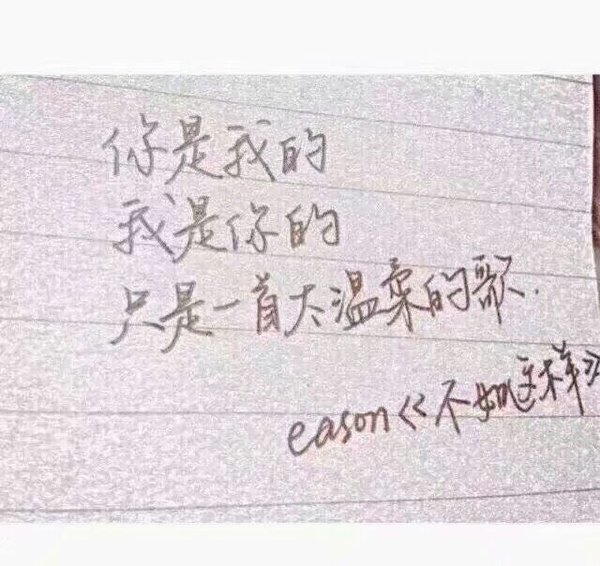 你是我的
我是你的
只是一首太温柔的歌.
eason《不如这样》